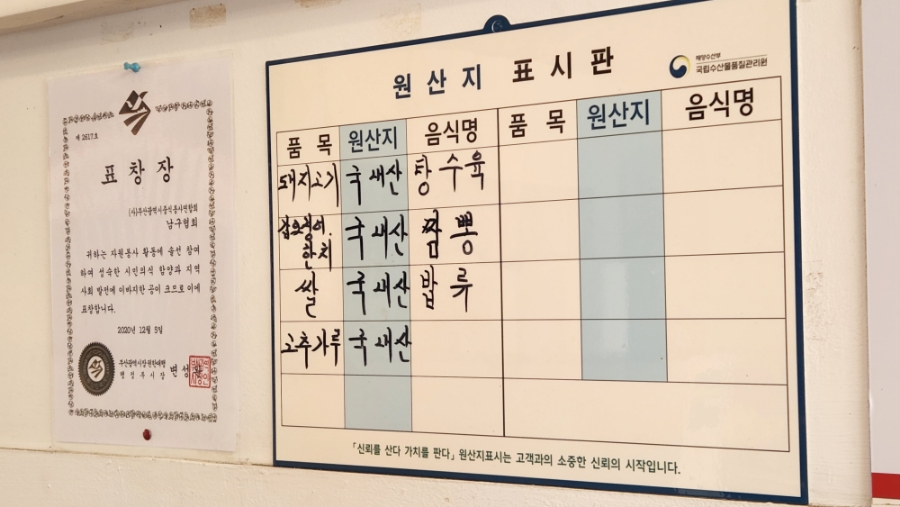 제 2617호
표 창 장
(사)부산광역시중식봉사연합회
남구협회
귀하는 자원봉사 활동에 솔선 참여
하여 성숙한 시민의식 함양과 지역
사회 발전에 이바지한 공이 크므로 이에
표창합니다.
2020년 12월 5일
부산광역시장 권한대행
행 정 부 시 장 변 성 완
원 산 지 표 시 판
해양수산부
국립수산물품질관리원
품 목 원산지 음식명 품 목 원산지 음식명
돼지고기 국내산 탕수육
갑오징어.
한치 국내산 짬뽕
쌀 국내산 밥류
고추가루 국내산
「신뢰를 산다 가치를 판다」 원산지표시는 고객과의 소중한 신뢰의 시작입니다.